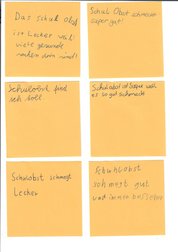 Das schul obst
ist Lecker weil
viele gesunde
sachen drin sind!
Schul Obst schmeckt
super gut!
Schulobst find
ich toll.
Schulobst ist Supper weil
es so gut schmeckt
Schulobst schmegt
Lecker
Schuhlobst
schmegt gut
und immer besser